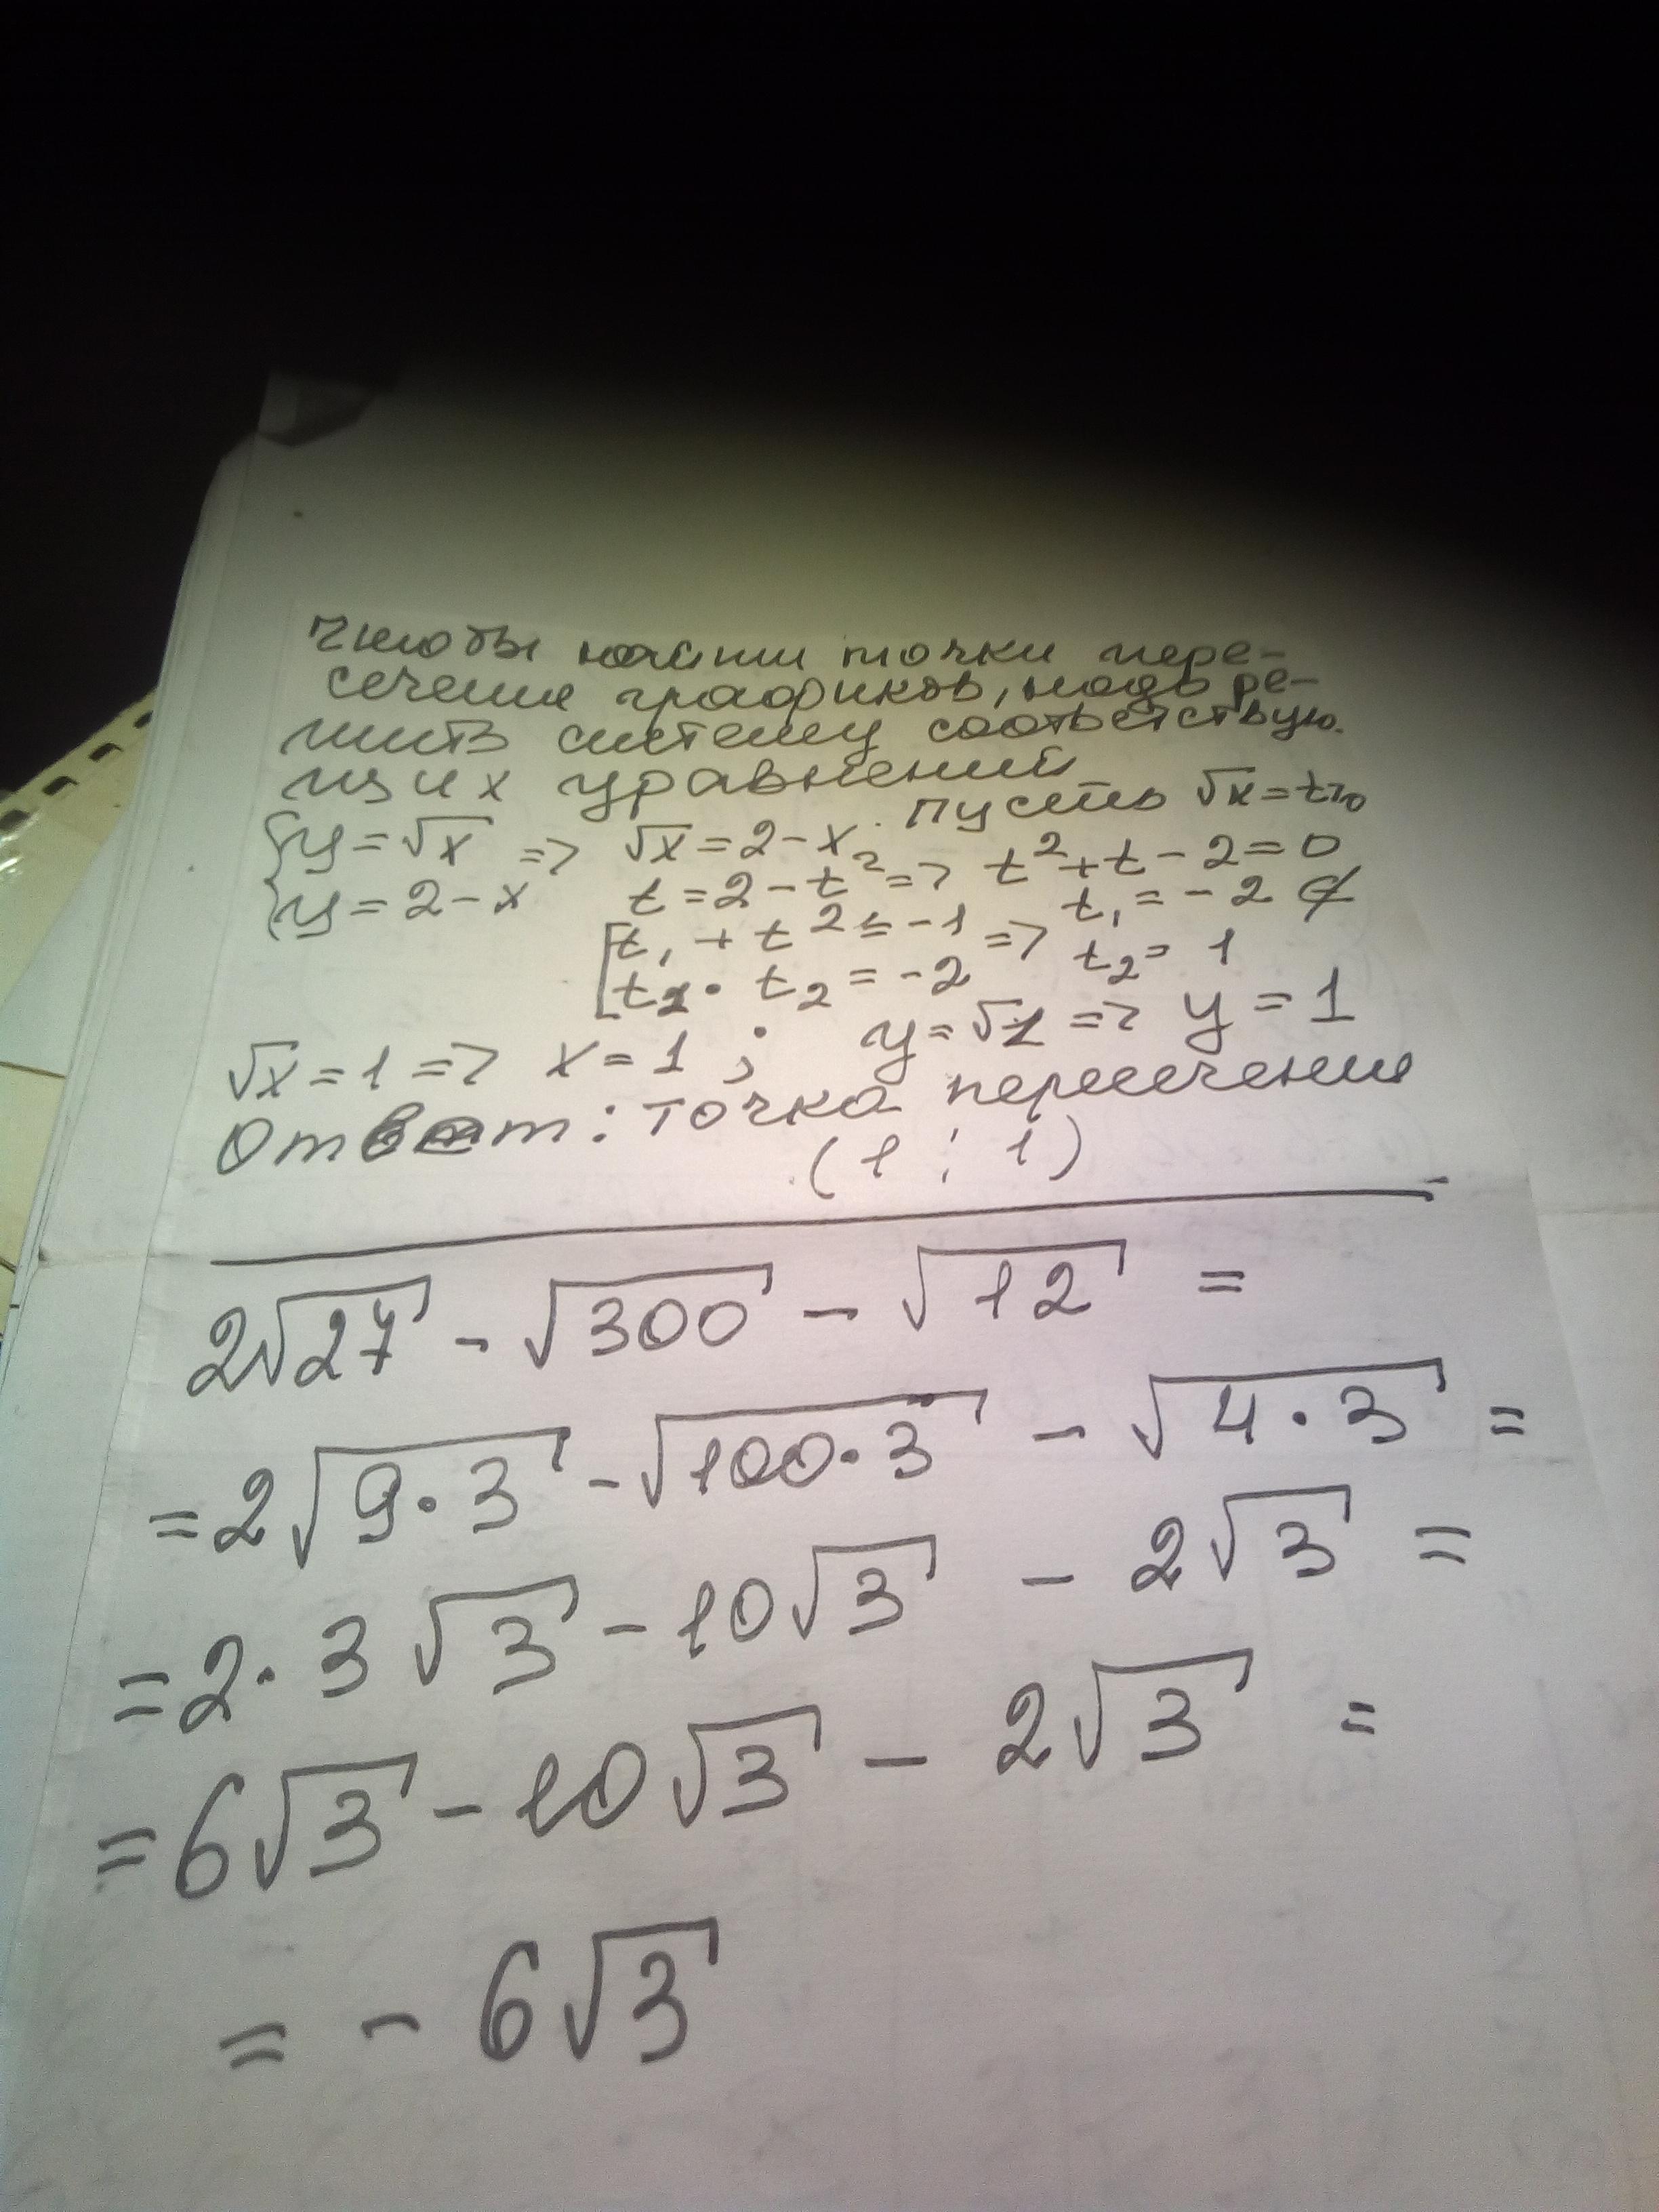 Чтобы найти точки пере-
сечения графиков, надо ре-
шить систему соответствую.
щих уравнений
{y = √x => √x = 2 - x. Пусть √x = t ≥ 0
{y = 2 - x t = 2 - t² => t² + t - 2 = 0
[t₁ + t² = -1 => t₁ = -2 ∉
t₂ · t₂ = -2 t₂ = 1
√x = 1 => x = 1 ; y = √1 => y = 1
Ответ: точка пересечения
(1 ; 1)
2√27 - √300 - √12 =
= 2√9·3 - √100·3 - √4·3 =
= 2·3√3 - 10√3 - 2√3 =
= 6√3 - 10√3 - 2√3 =
= - 6√3